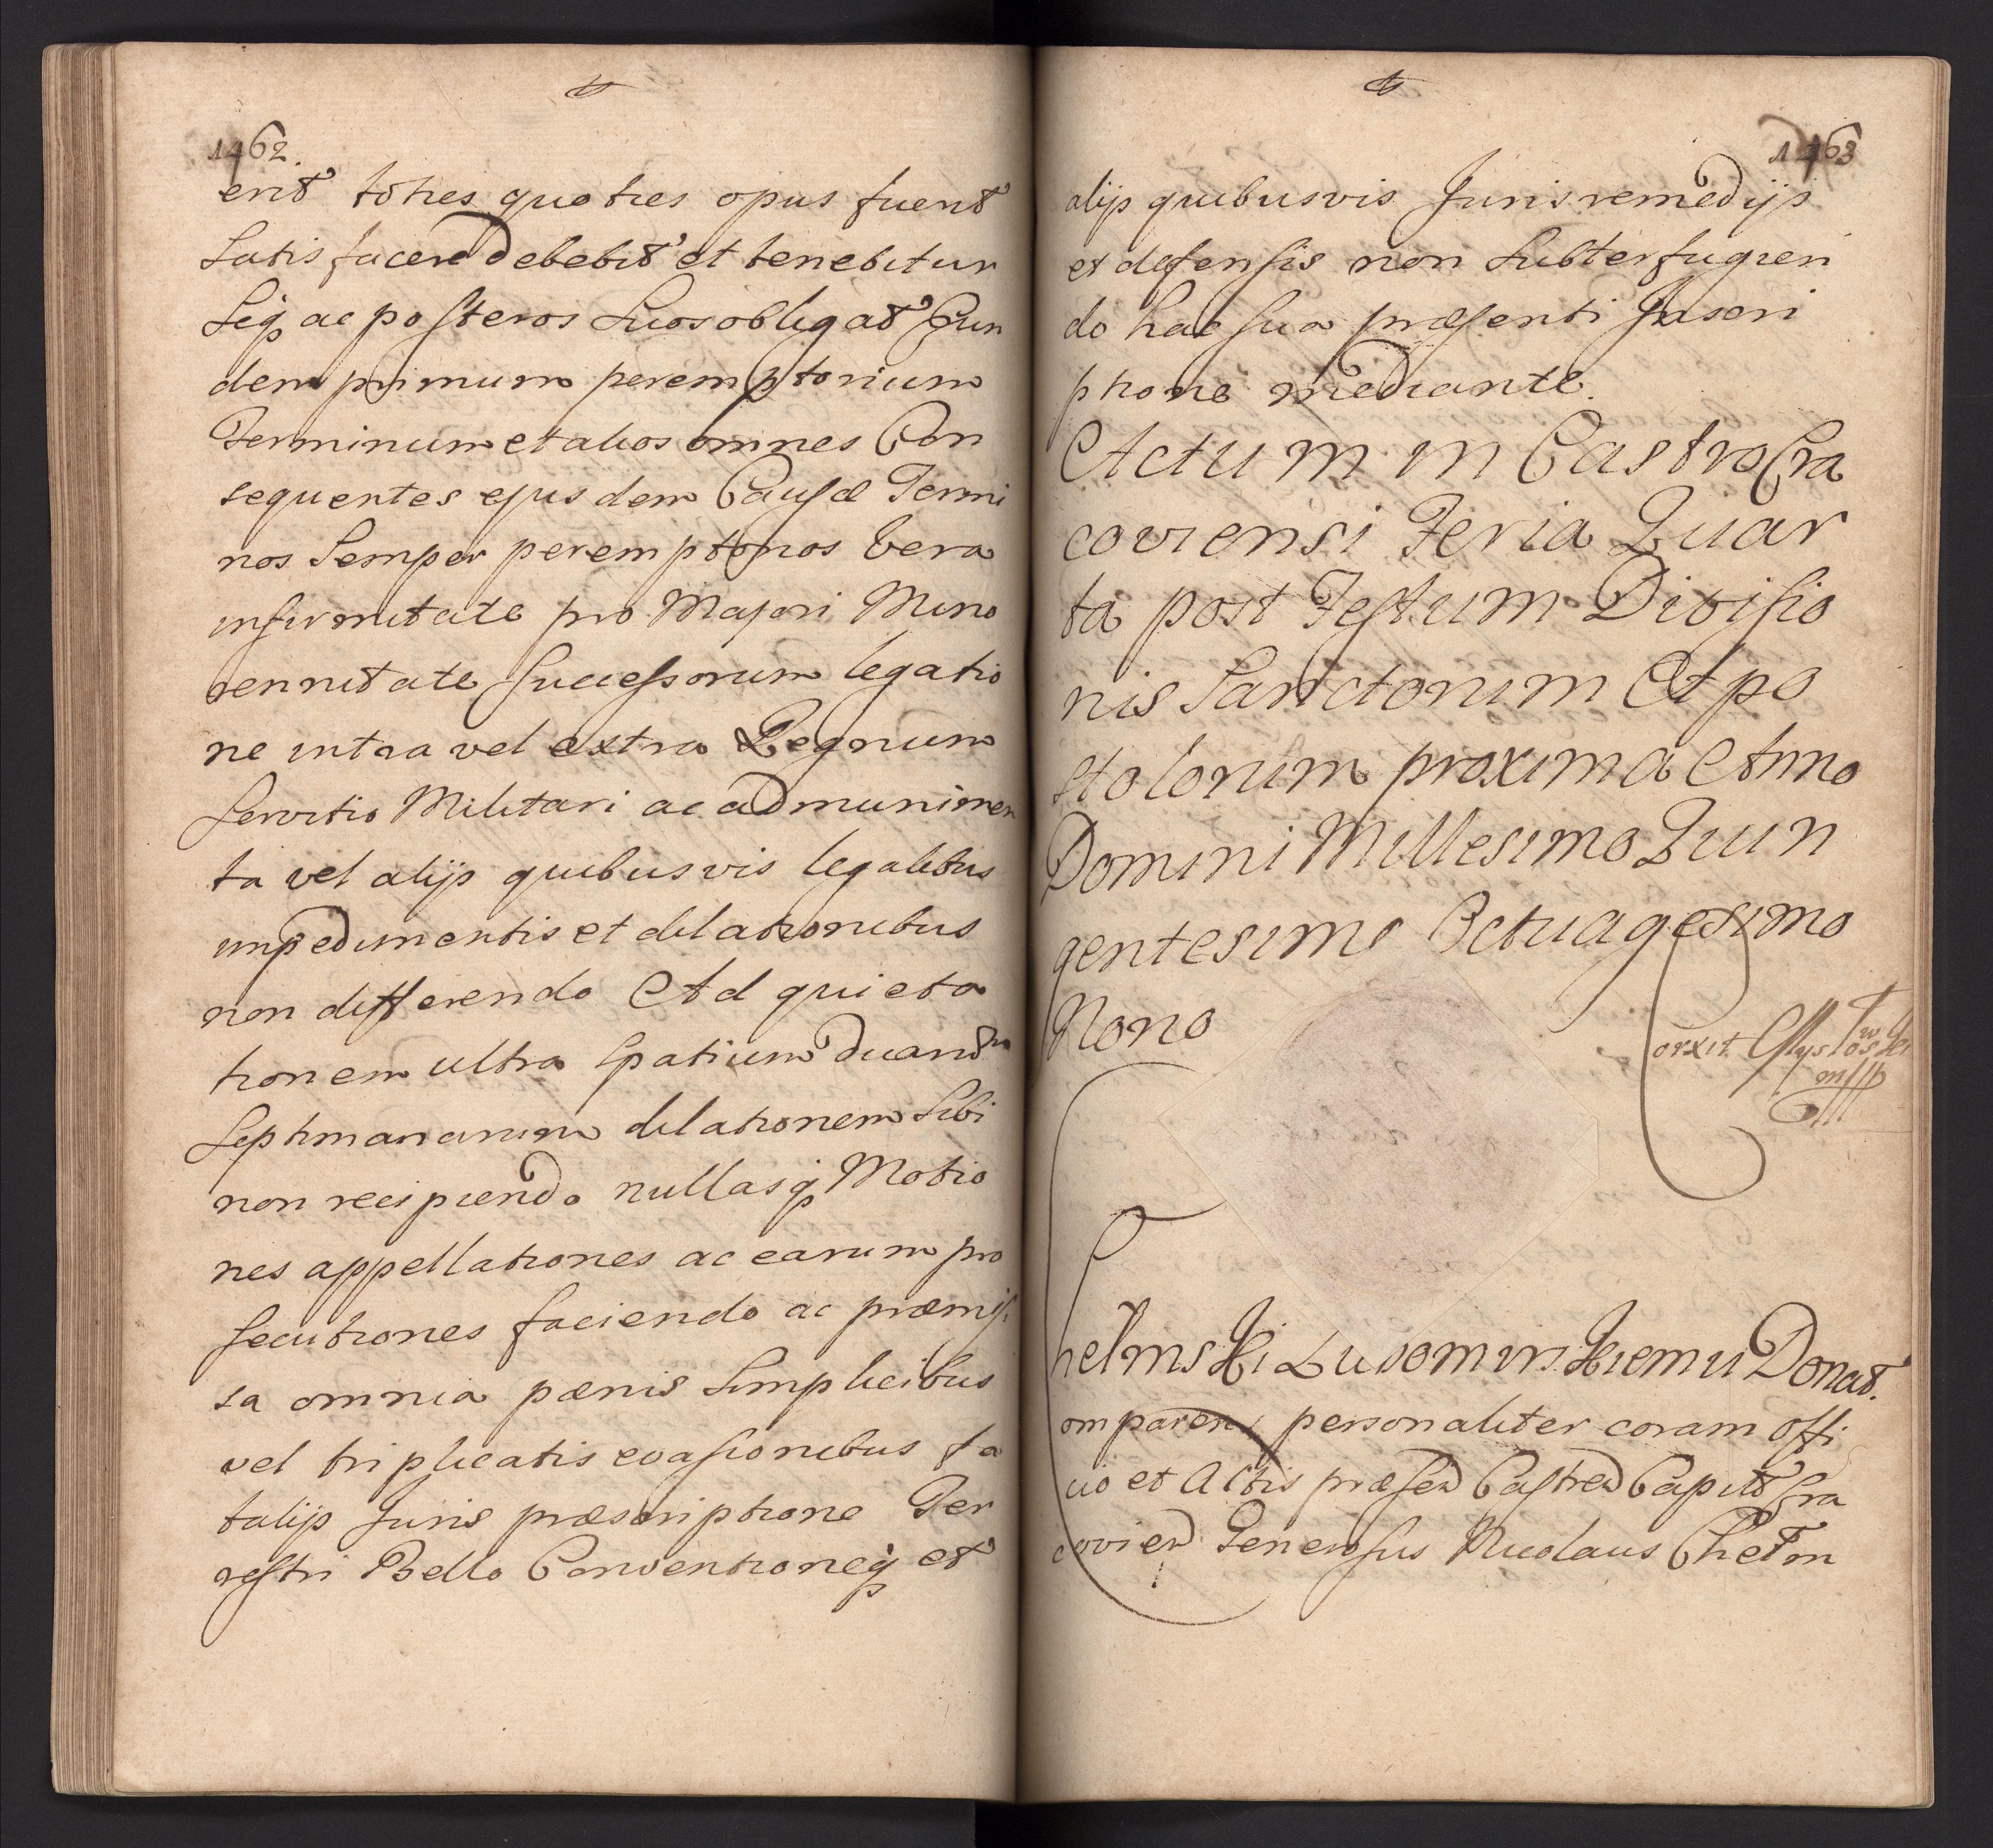 1462.
erit toties quoties opus fuerit
Satisfacere debebit et tenebitur
Seq ac posteros Suos obligat Eun
dem primum peremptorium
Terminum et alios omnes Con
sequentes ejusdem Causæ Termi
nos Semper peremptorios Vera
infirmitate pro Majori Mino
rennitate Successorum legatio
ne intra vel extra Regnum
Servitio Militari ac ad munimen
ta vel alijs quibusvis legalibus
impedimentis et dilationibus
non differendo Ad quieta
tionem ultra Spatium duarum
Septimanarum dilationem Sibi
non recipiendo nullasq Motio
nes appellationes ac earum pro
secutiones faciendo ac præmis
sa omnia pænis Simplicibus
vel triplicatis evasionibus ta
talijs Juris præscriptione Ter
restri Bello Conventioneq et
1463
alijs quibusvis Juris remedijs
et defensis non Subterfugien
do hac sua præsenti Inscri
ptione mediante.
Actum in Castro Cra
coviensi Feria Quar
ta post Festum Divisio
nis Sanctorum Apo
stolorum proxima Anno
Domini Millesimo Quin
gentesimo Octuagesimo
Nono
orxit
mpp
helmski Lubomirskiemu Donat.
omparens personaliter coram offi
cio et Actis præsen Castren Capit Cra
covien Generosus Nicolaus Chelm